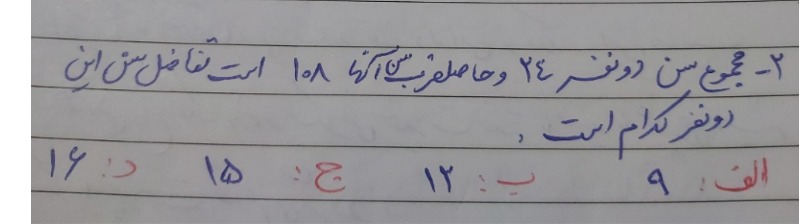 ۲- مجموع سن دونفر ۲۴ وحاصلضرب سن آنها ۱۰۸ است تفاضل سن این
دونفر کدام است .
الف: ۹ ب: ۱۲ ج: ۱۵ د: ۱۶